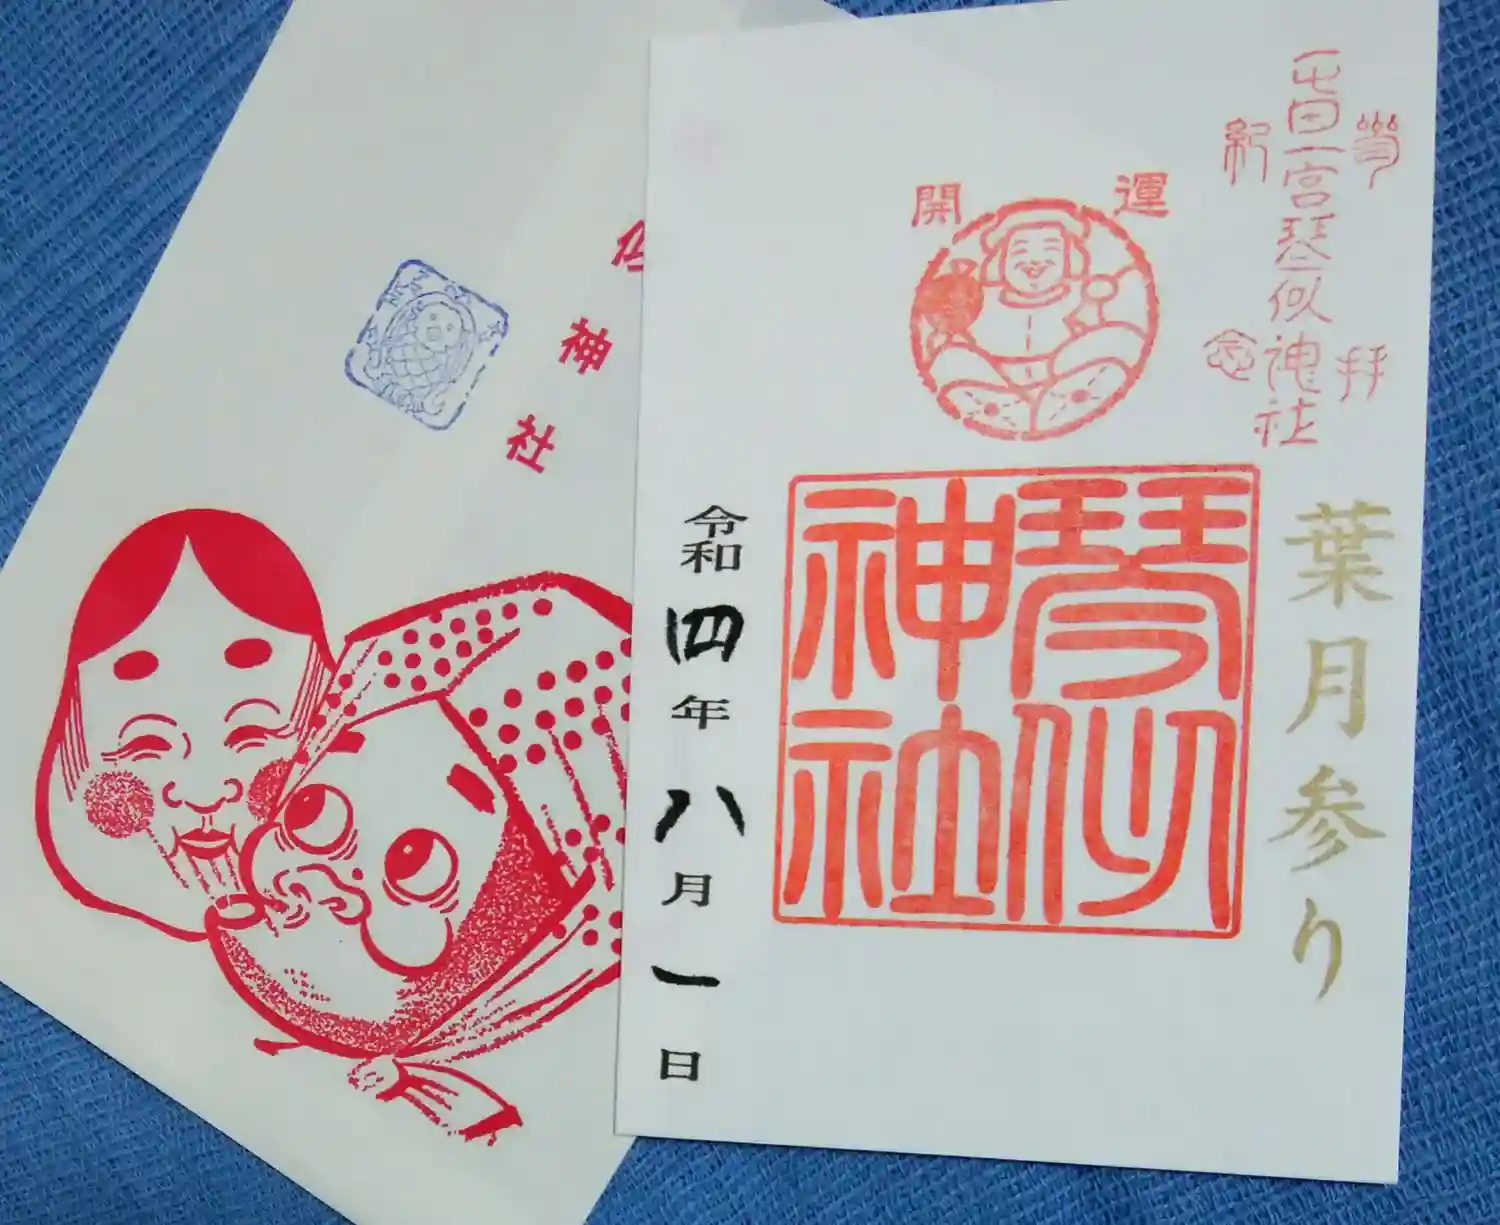 参拝
屯田一宮琴似神社
紀念
葉月参り
開運
琴似
神社
令和四年八月一日
神社